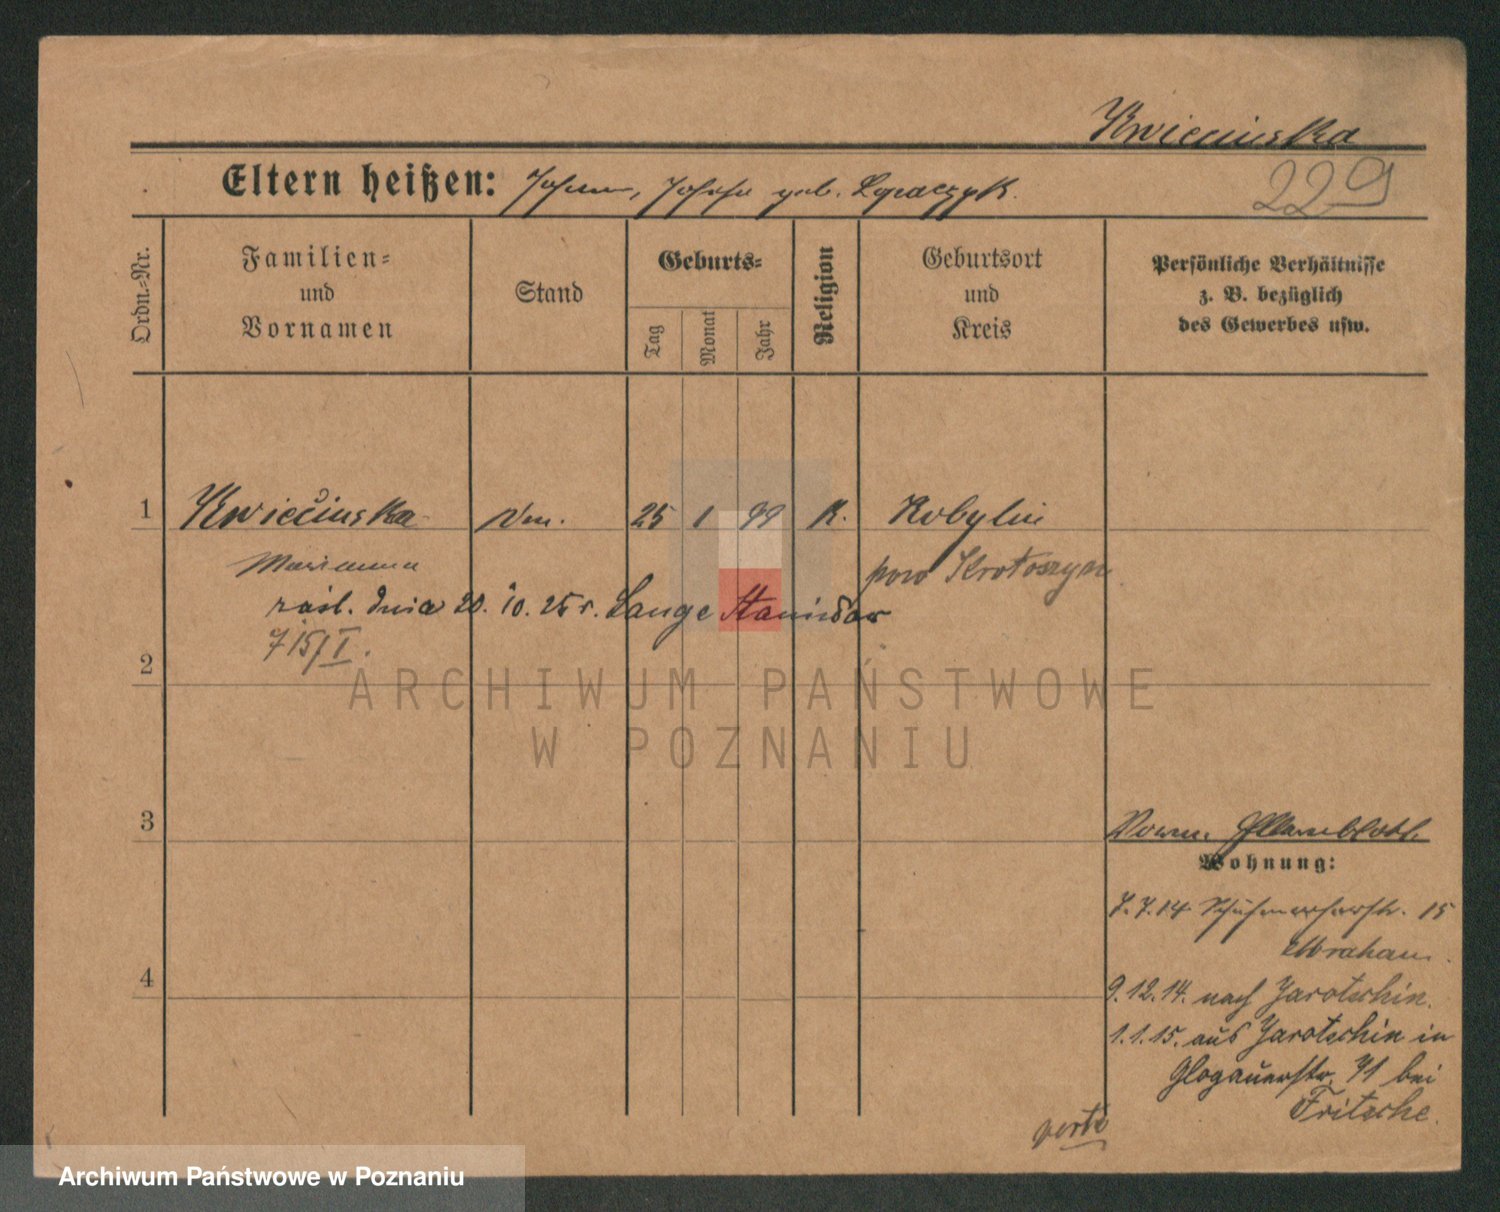 Kwiecinska
229
Eltern heißen: Johann, Josefa geb. Ignaczyk.
Ordn.-Nr.
Familien-
und
Vornamen
Stand
Geburts-
Tag
Monat
Jahr
Religion
Geburtsort
und
Kreis
Persönliche Verhältnisse
z. B. bezüglich
des Gewerbes usw.
1 Kwiecinska 25 1 99 K. Kobylin
Marianna pow Krotoszyn
zaśl. dnia 20. 10. 25 r. Lange Stanisław
715/I.
2
ARCHIWUM PAŃSTWOWE
W POZNANIU
3
Wohnung:
7.7.14 15
Abraham.
4
9.12.14. nach Jarotschin.
1.1.15. aus Jarotschin in
Glogauerstr. 71 bei
Fritsche.
Archiwum Państwowe w Poznaniu